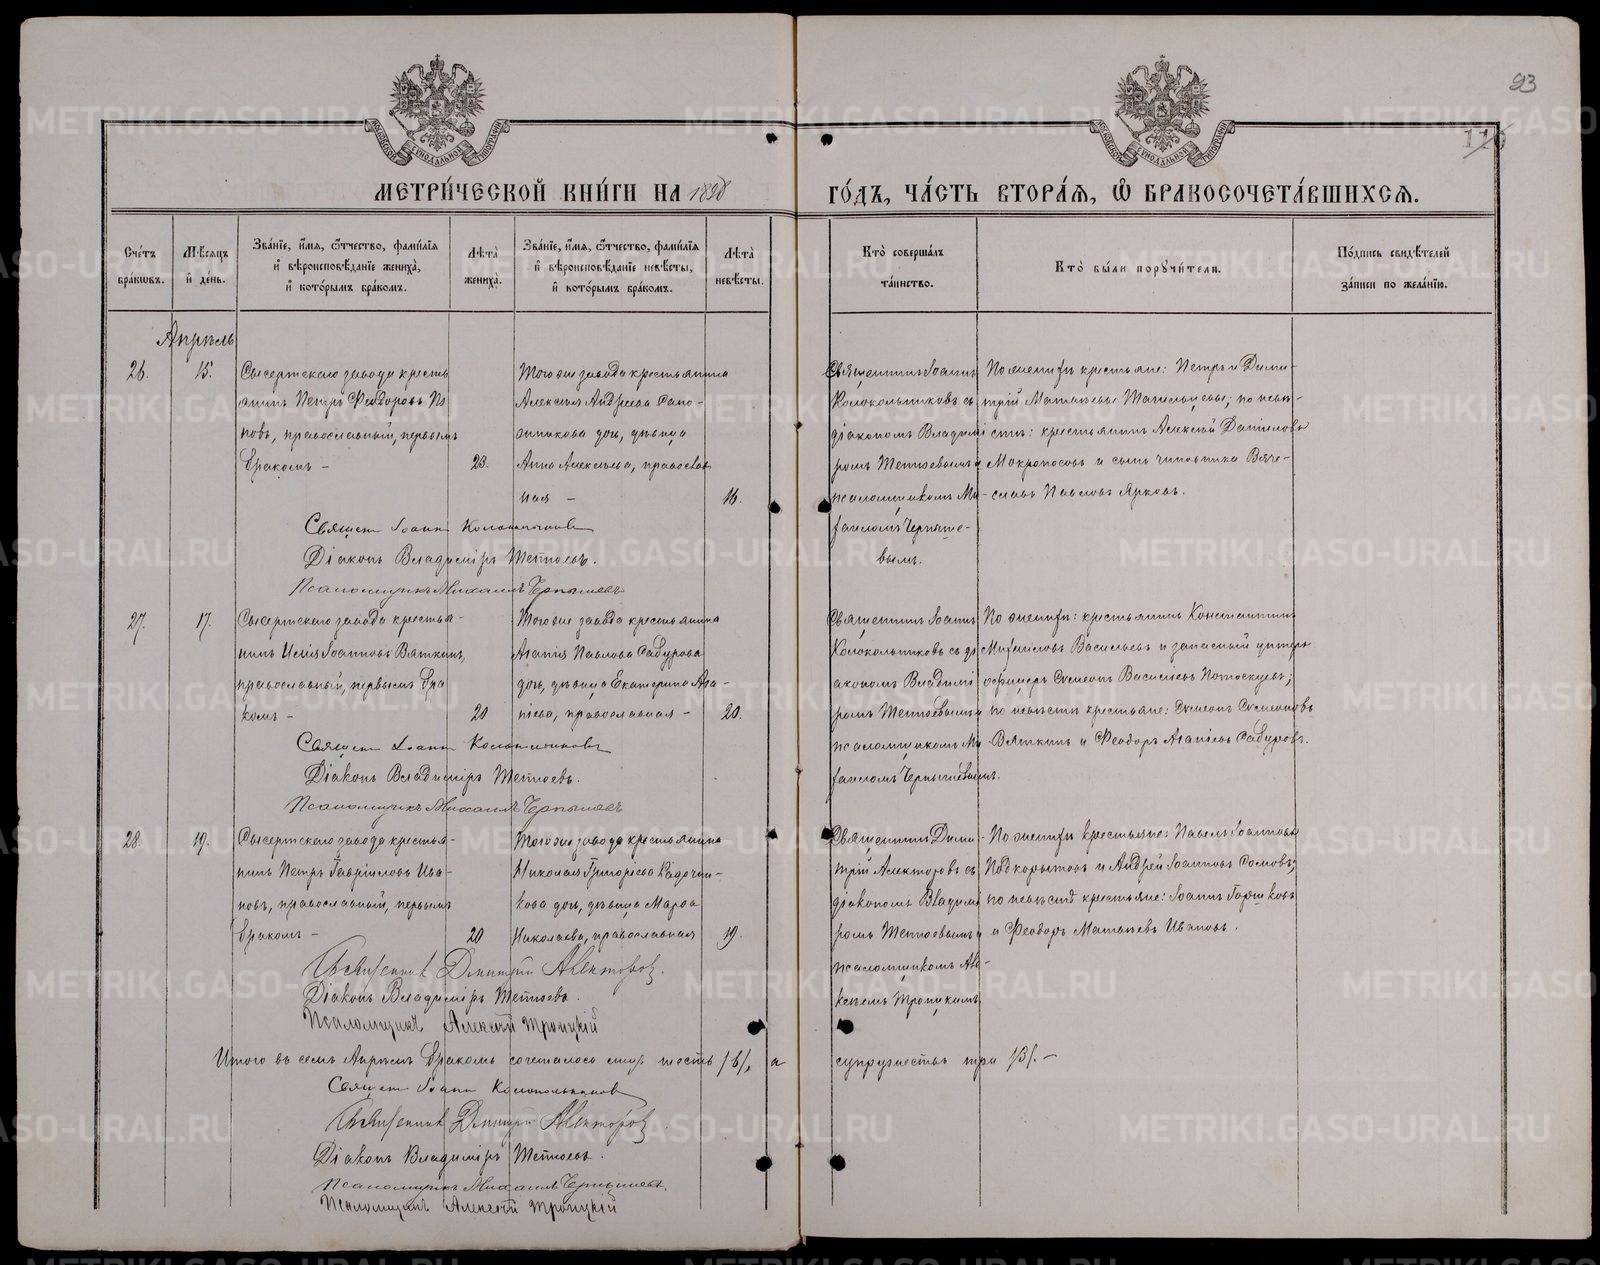 93
МОСКОВСКОЙ СУНОДАЛЬНОЙ ТИПОГРАФИИ
МОСКОВСКОЙ СУНОДАЛЬНОЙ ТИПОГРАФИИ
МЕТРИ́ЧЕСКОЙ КНИ́ГИ НА 1898 ГО́ДЪ, ЧА́СТЬ ВТОРА́Я, Ѽ БРАКОСОЧЕТА́ВШИХСЯ.
Сче́тъ бра́ковъ.
Мѣ́сяцъ и де́нь.
Зва́нїе, и́мя, ѻ́тчество, фами́лїя
и҆ вѣроисповѣ́данїе жениха̀,
и҆ кото́рымъ бра́комъ.
Лѣ́та жениха̀.
Зва́нїе, и́мя, ѻ́тчество, фами́лїя
и҆ вѣроисповѣ́данїе невѣ́сты,
и҆ кото́рымъ бра́комъ.
Лѣ́та невѣ́сты.
Кто̀ соверша́лъ
та́инство.
Кто̀ бы́ли порꙋчи́тели.
По́дпись свидѣ́телей
за́писи по жела́нїю.
Апрѣль
26.
15.
Сысертскаго завода кресть
янинъ Петръ Феодоровъ По
повъ, православный, первымъ
бракомъ –
23.
Того же завода крестьянина
Алексѣя Андреева Сапо-
жникова дочь, дѣвица
Анна Алексѣева, православ
ная –
16.
Священникъ Іоаннъ
Колокольниковъ съ
діакономъ Владимі
ромъ Тетюевымъ и
псаломщикомъ Ми-
хаиломъ Черныше-
вымъ.
По женихѣ крестьяне: Петръ и Дими-
трій Матвѣевы Тагильцевы; по невѣ-
стѣ: крестьянинъ Алексѣй Даниловъ
Мокроносовъ и сынъ чиновника Вяче-
славъ Павловъ Ярковъ.
Священ. Іоаннъ Колокольниковъ
Діаконъ Владиміръ Тетюевъ.
Псаломщикъ Михаилъ Чернышевъ
27.
17.
Сысертскаго завода крестья-
нинъ Илія Іоанновъ Вяткинъ,
православный, первымъ бра
комъ –
20
Того же завода крестьянина
Агапія Павлова Сабурова
дочь, дѣвица Екатерина Ага-
піева, православная –
20.
Священникъ Іоаннъ
Колокольниковъ съ ді
акономъ Владимі
ромъ Тетюевымъ и
псаломщикомъ Ми-
хаиломъ Чернышевымъ.
По женихѣ: крестьянинъ Константинъ
Михаиловъ Васильевъ и запасный унтеръ
офицеръ Сѵмеонъ Василіевъ Потоскуевъ;
по невѣстѣ крестьяне: Сѵмеонъ Сѵмеоновъ
Вяткинъ и Феодоръ Агапіевъ Сабуровъ.
Священ. Іоаннъ Колокольниковъ
Діаконъ Владиміръ Тетюевъ.
Псаломщикъ Михаилъ Чернышевъ
28.
19.
Сысертскаго завода крестья-
нинъ Петръ Гавріиловъ Ива-
новъ, православный, первымъ
бракомъ –
20
Того же завода крестьянина
Николая Григоріева Кадочни-
кова дочь, дѣвица Марѳа
Николаева, православная
19.
Священникъ Дими-
трій Алекторовъ съ
діакономъ Владимі
ромъ Тетюевымъ и
псаломщикомъ Але-
ксѣемъ Троицкимъ
По женихѣ крестьяне: Павелъ Іоанновъ
Подкорытовъ и Андрей Іоанновъ Сомовъ;
по невѣстѣ крестьяне: Іоаннъ Горшковъ
и Феодоръ Матвѣевъ Ивановъ.
Священникъ Дмитрій Алекторовъ.
Діаконъ Владиміръ Тетюевъ.
Псаломщикъ Алексѣй Троицкій
Итого въ семъ Апрѣлѣ бракомъ сочеталось лицъ шесть /6/, а супружествъ три /3/. –
Священ. Іоаннъ Колокольниковъ
Священникъ Дмитрій Алекторовъ.
Діаконъ Владиміръ Тетюевъ.
Псаломщикъ Михаилъ Чернышевъ.
Псаломщикъ Алексѣй Троицкій
METRIKI.GASO-URAL.RU